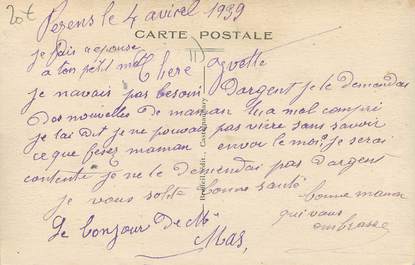 20€
Perens le 4 avirel 1939
CARTE POSTALE
je fais réponse
a ton petit mot
Chere Yvette
je navais pas besoin Dargent je te demandai
Des nouvelles de maman tu a mal compri
je tai dit je ne pouvai pas vivre sans savoir
ce que fesez maman envoi le moi je serai
contente je ne te demendai pas dargent
je vous souhte bonne santé
Le bonjour de Mme
Mas,
bonne maman
qui vous
embrasse